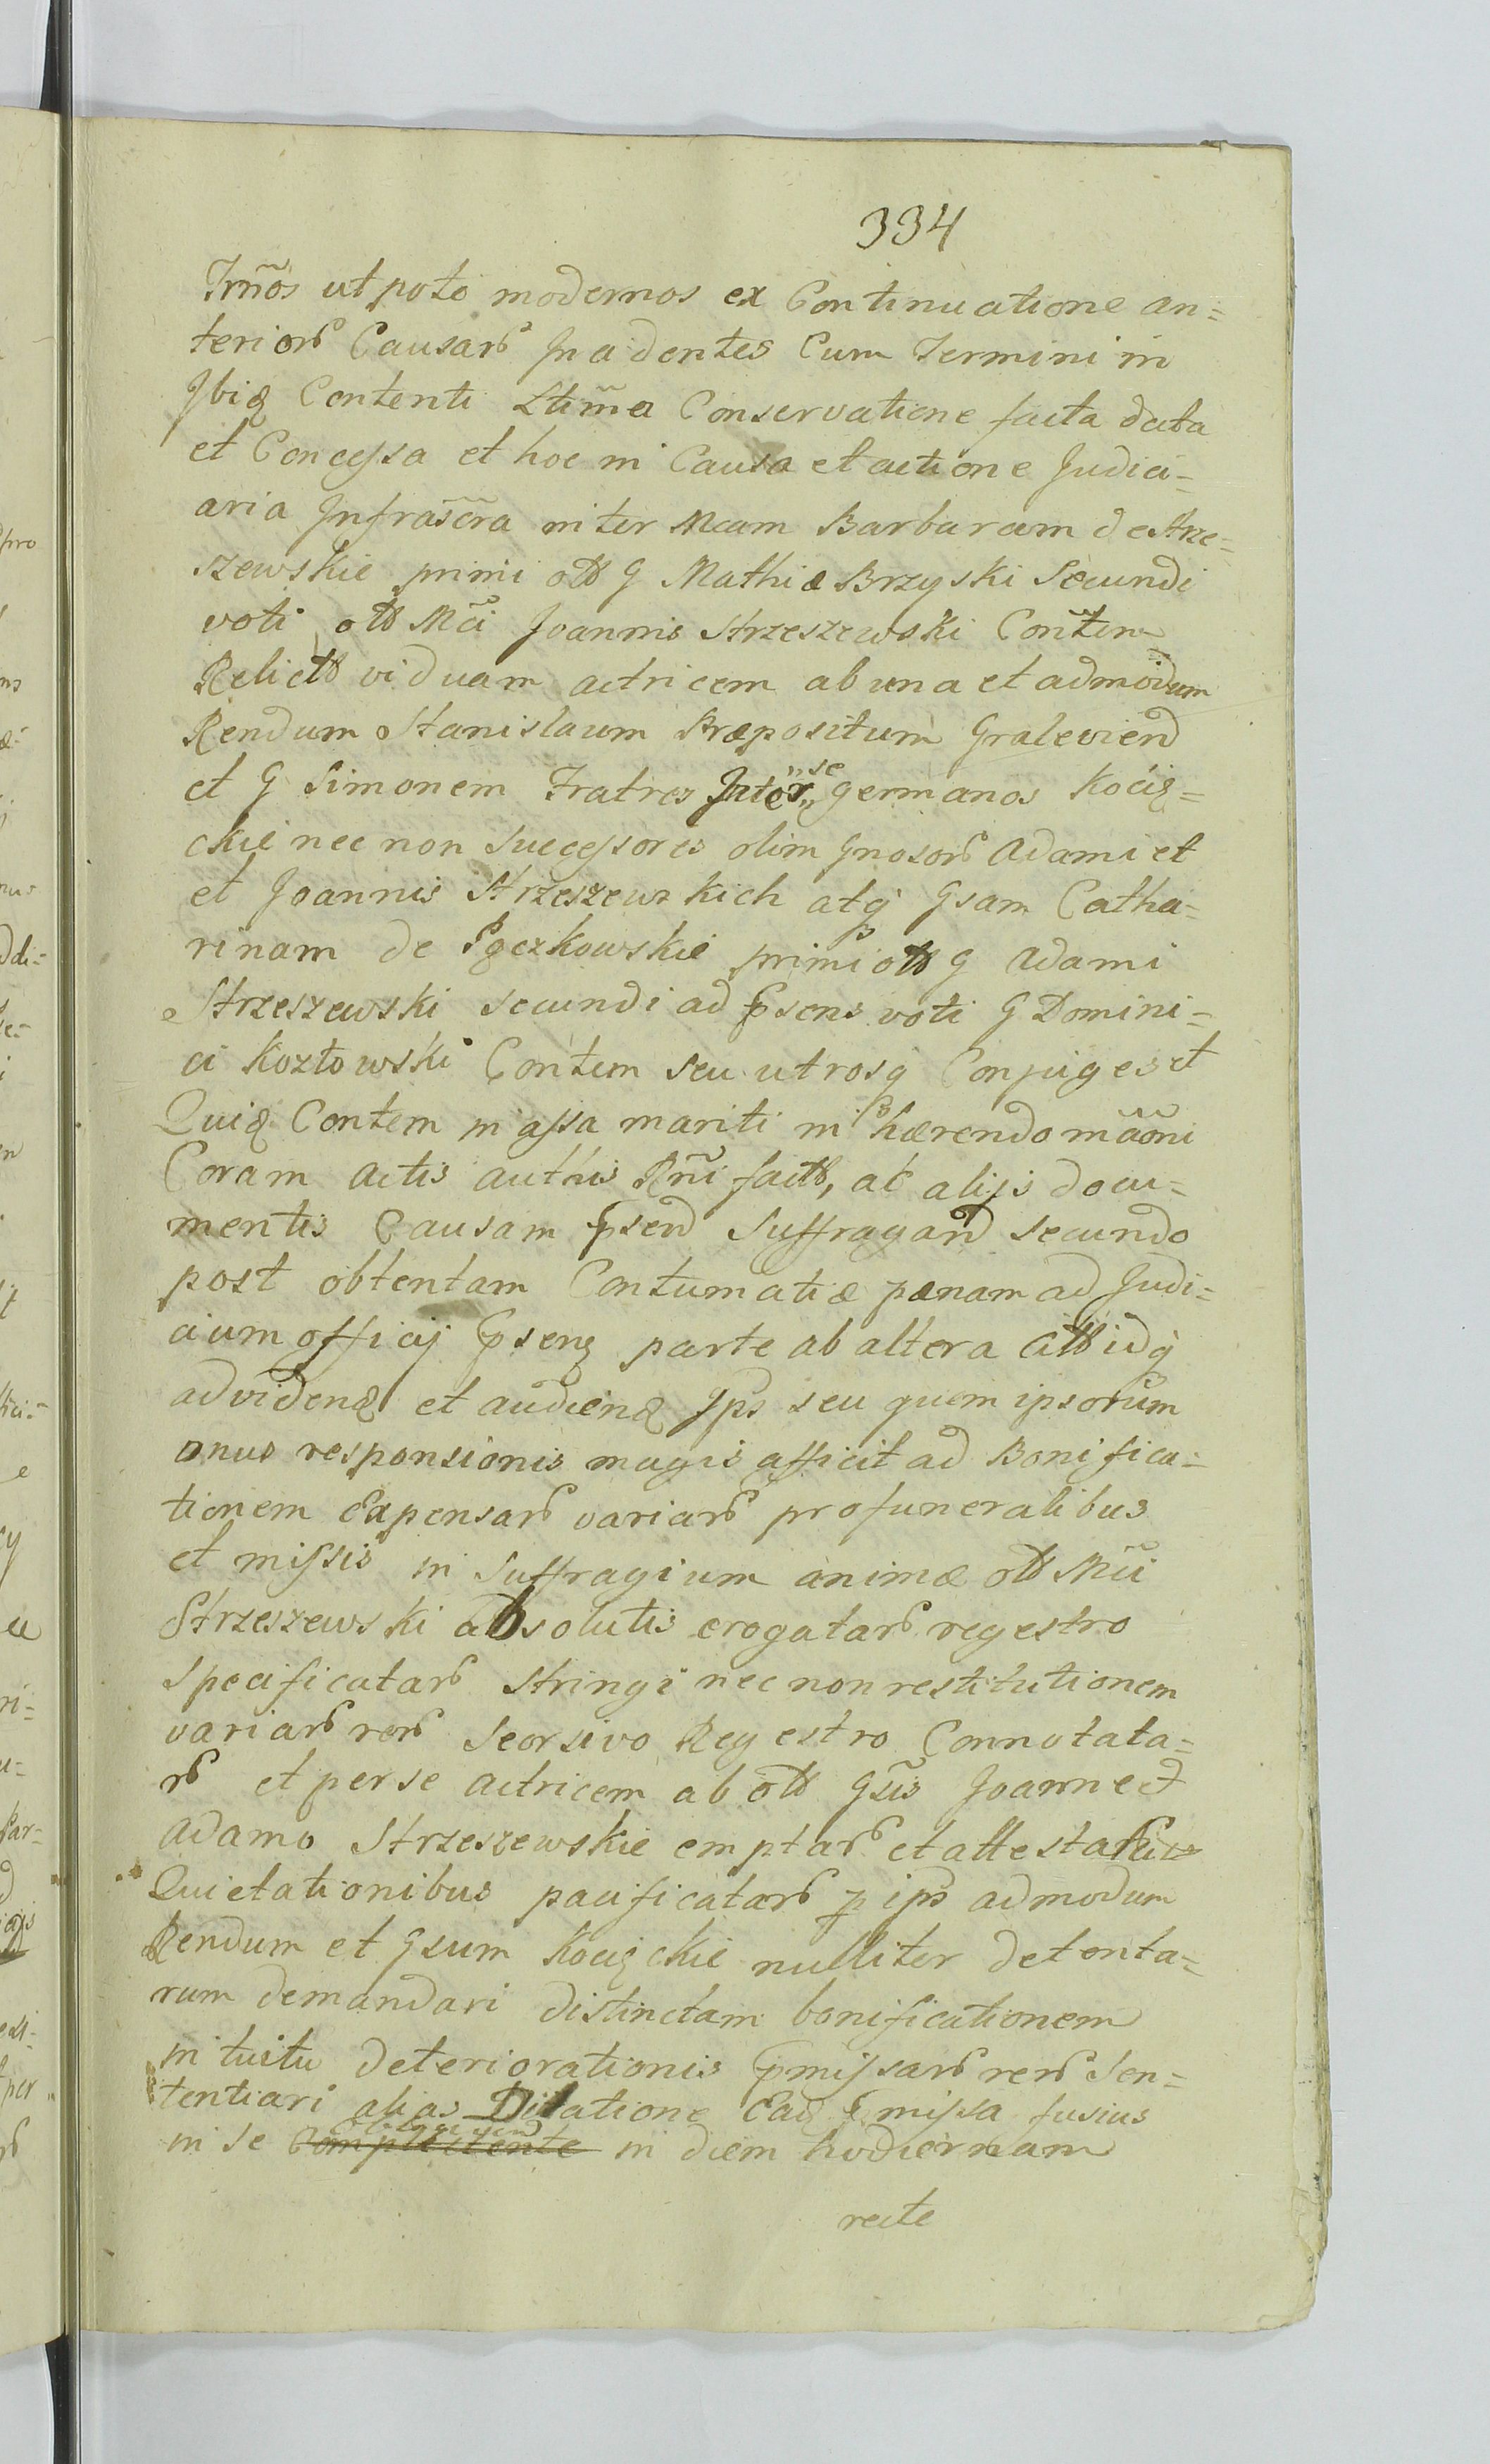 334
Tmños ut poto modernos ex Continuatione an=
terior Causar Incidentes Cum Termini in
Ibiq Contenti Ltima Conservatione facta data
et Concessa et hoc in Causa et actione Judici=
aria Infrascra inter Mcam Barbaram de Strze=
szewskie primi ott G Mathiæ Brzyski Secundi
voti ott Mci Joannis Strzeszewski Conten
Relict viduam actricem ab una et admodum
Rendum Stanislaum Præpositum Gralewien
et G Simonem Fratres Inter „se germanos Kocię=
ckie nec non Successores olim Gnosor Adami et
et Joannis Strzeszewskich atq Gsam Catha=
rinam de Pączkowskie primi ott G Adami
Strzeszewski secundi ad psens voti G Domini=
ci Kozłowski Contem seu utrosq Conjuges et
Quiq Contem in assa mariti in hærendo mãoni
Coram actis authis Rñi fact, ac alijs docu=
mentis Causam psen Suffragan secundo
post obtentam Contumatiæ pænam ad Judi=
cium officij psens parte ab altera citt idq
ad videnq et audienq Ips seu quem ipsorum
onus responsionis magis afficit ad Bonifica=
tionem Expensar variar pro funeralibus
et missis in Suffragium animæ ott Mci
Strzeszewski absolutis erogatar regestro
Specificatar Stringi nec non restitutionem
variar rer Seorsivo Regestro Connotata=
r et per se actricem ab ott Gsis Joanne et
Adamo Strzeszewskie emptar et attestatis
Quietationibus pacificatar p ips admodum
Rendum et Gsum Kocięckie nulliter detenta=
rum demandari distinctam bonificationem
intuitu deteriorationis pmissar rer Sen=
tentiari alias Dilatione Eaq pmissa fusius
in se complectente in diem hodiernam
recte